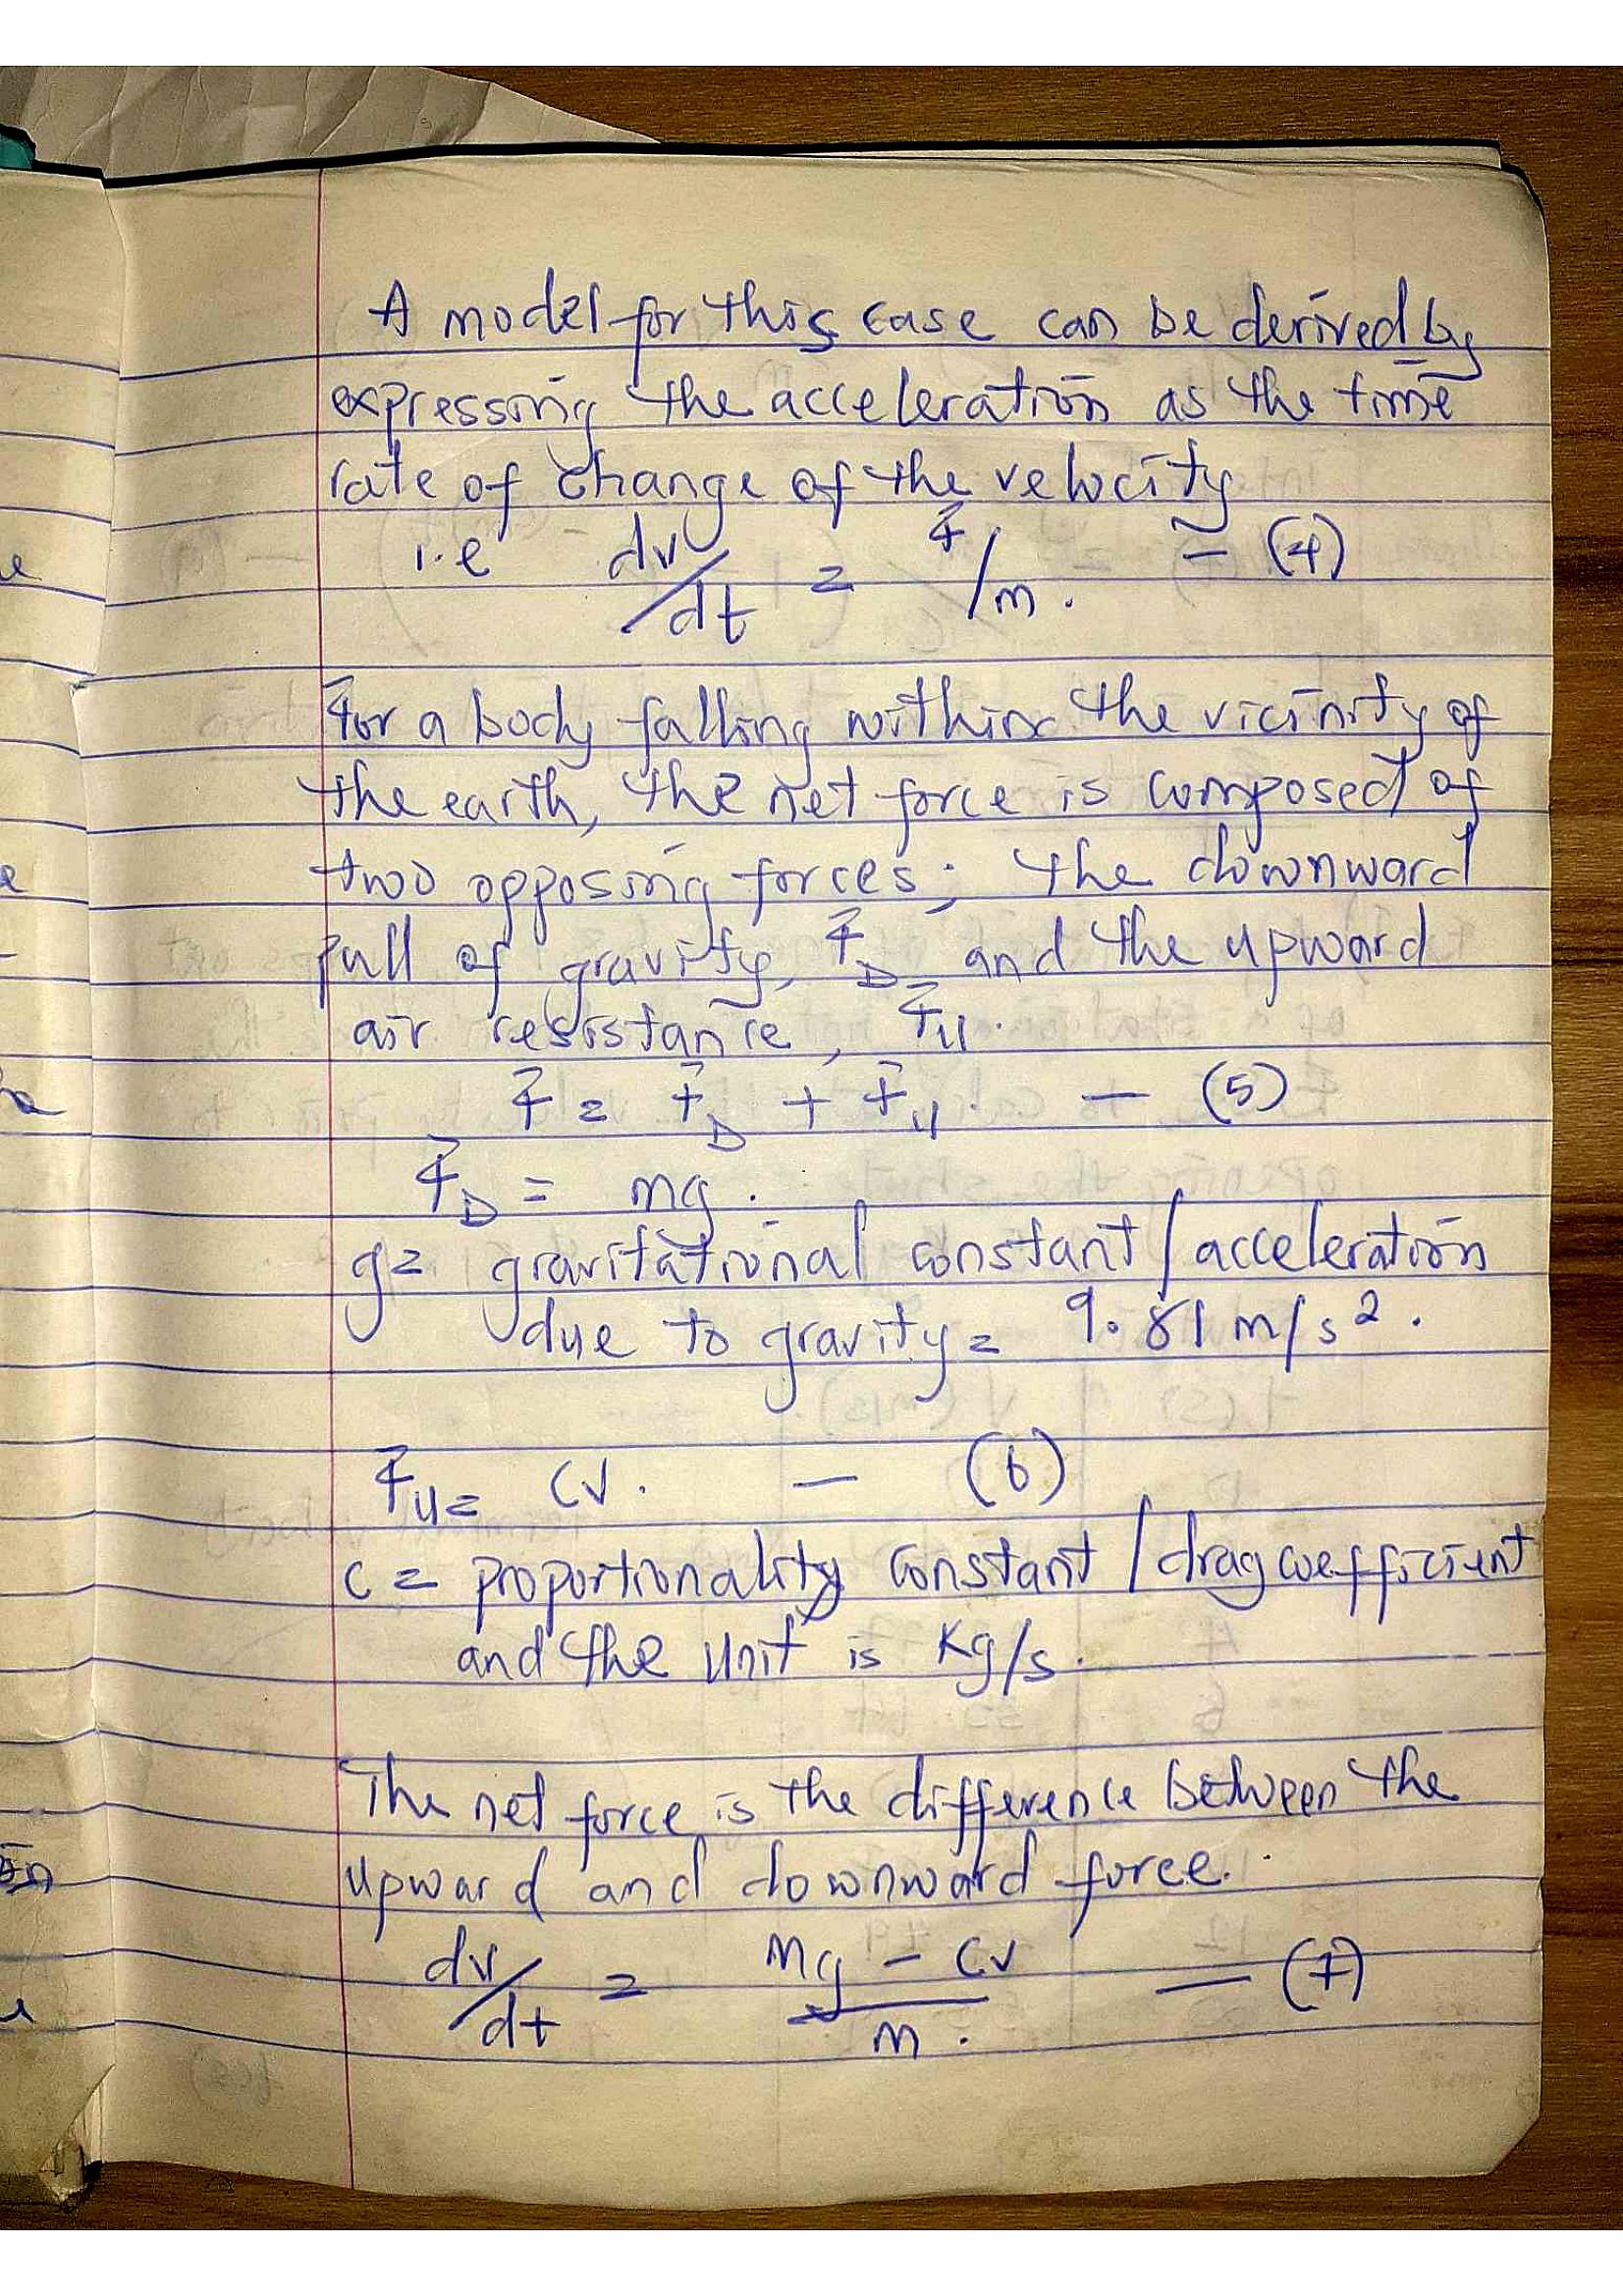 A model for this case can be derived by
expressing the acceleration as the time
rate of change of the velocity
i.e dv/dt = F/m. - (4)
For a body falling within the vicinity of
the earth, the net force is composed of
two opposing forces; the downward
pull of gravity, F_D and the upward
air resistance, F_U.
F = F_D + F_U. - (5)
F_D = mg.
g = gravitational constant/acceleration
due to gravity = 9.81 m/s².
F_U = cv. - (6)
c = proportionality constant/drag coefficient
and the unit is kg/s.
The net force is the difference between the
upward and downward force.
dv/dt = (mg - cv)/m. - (7)